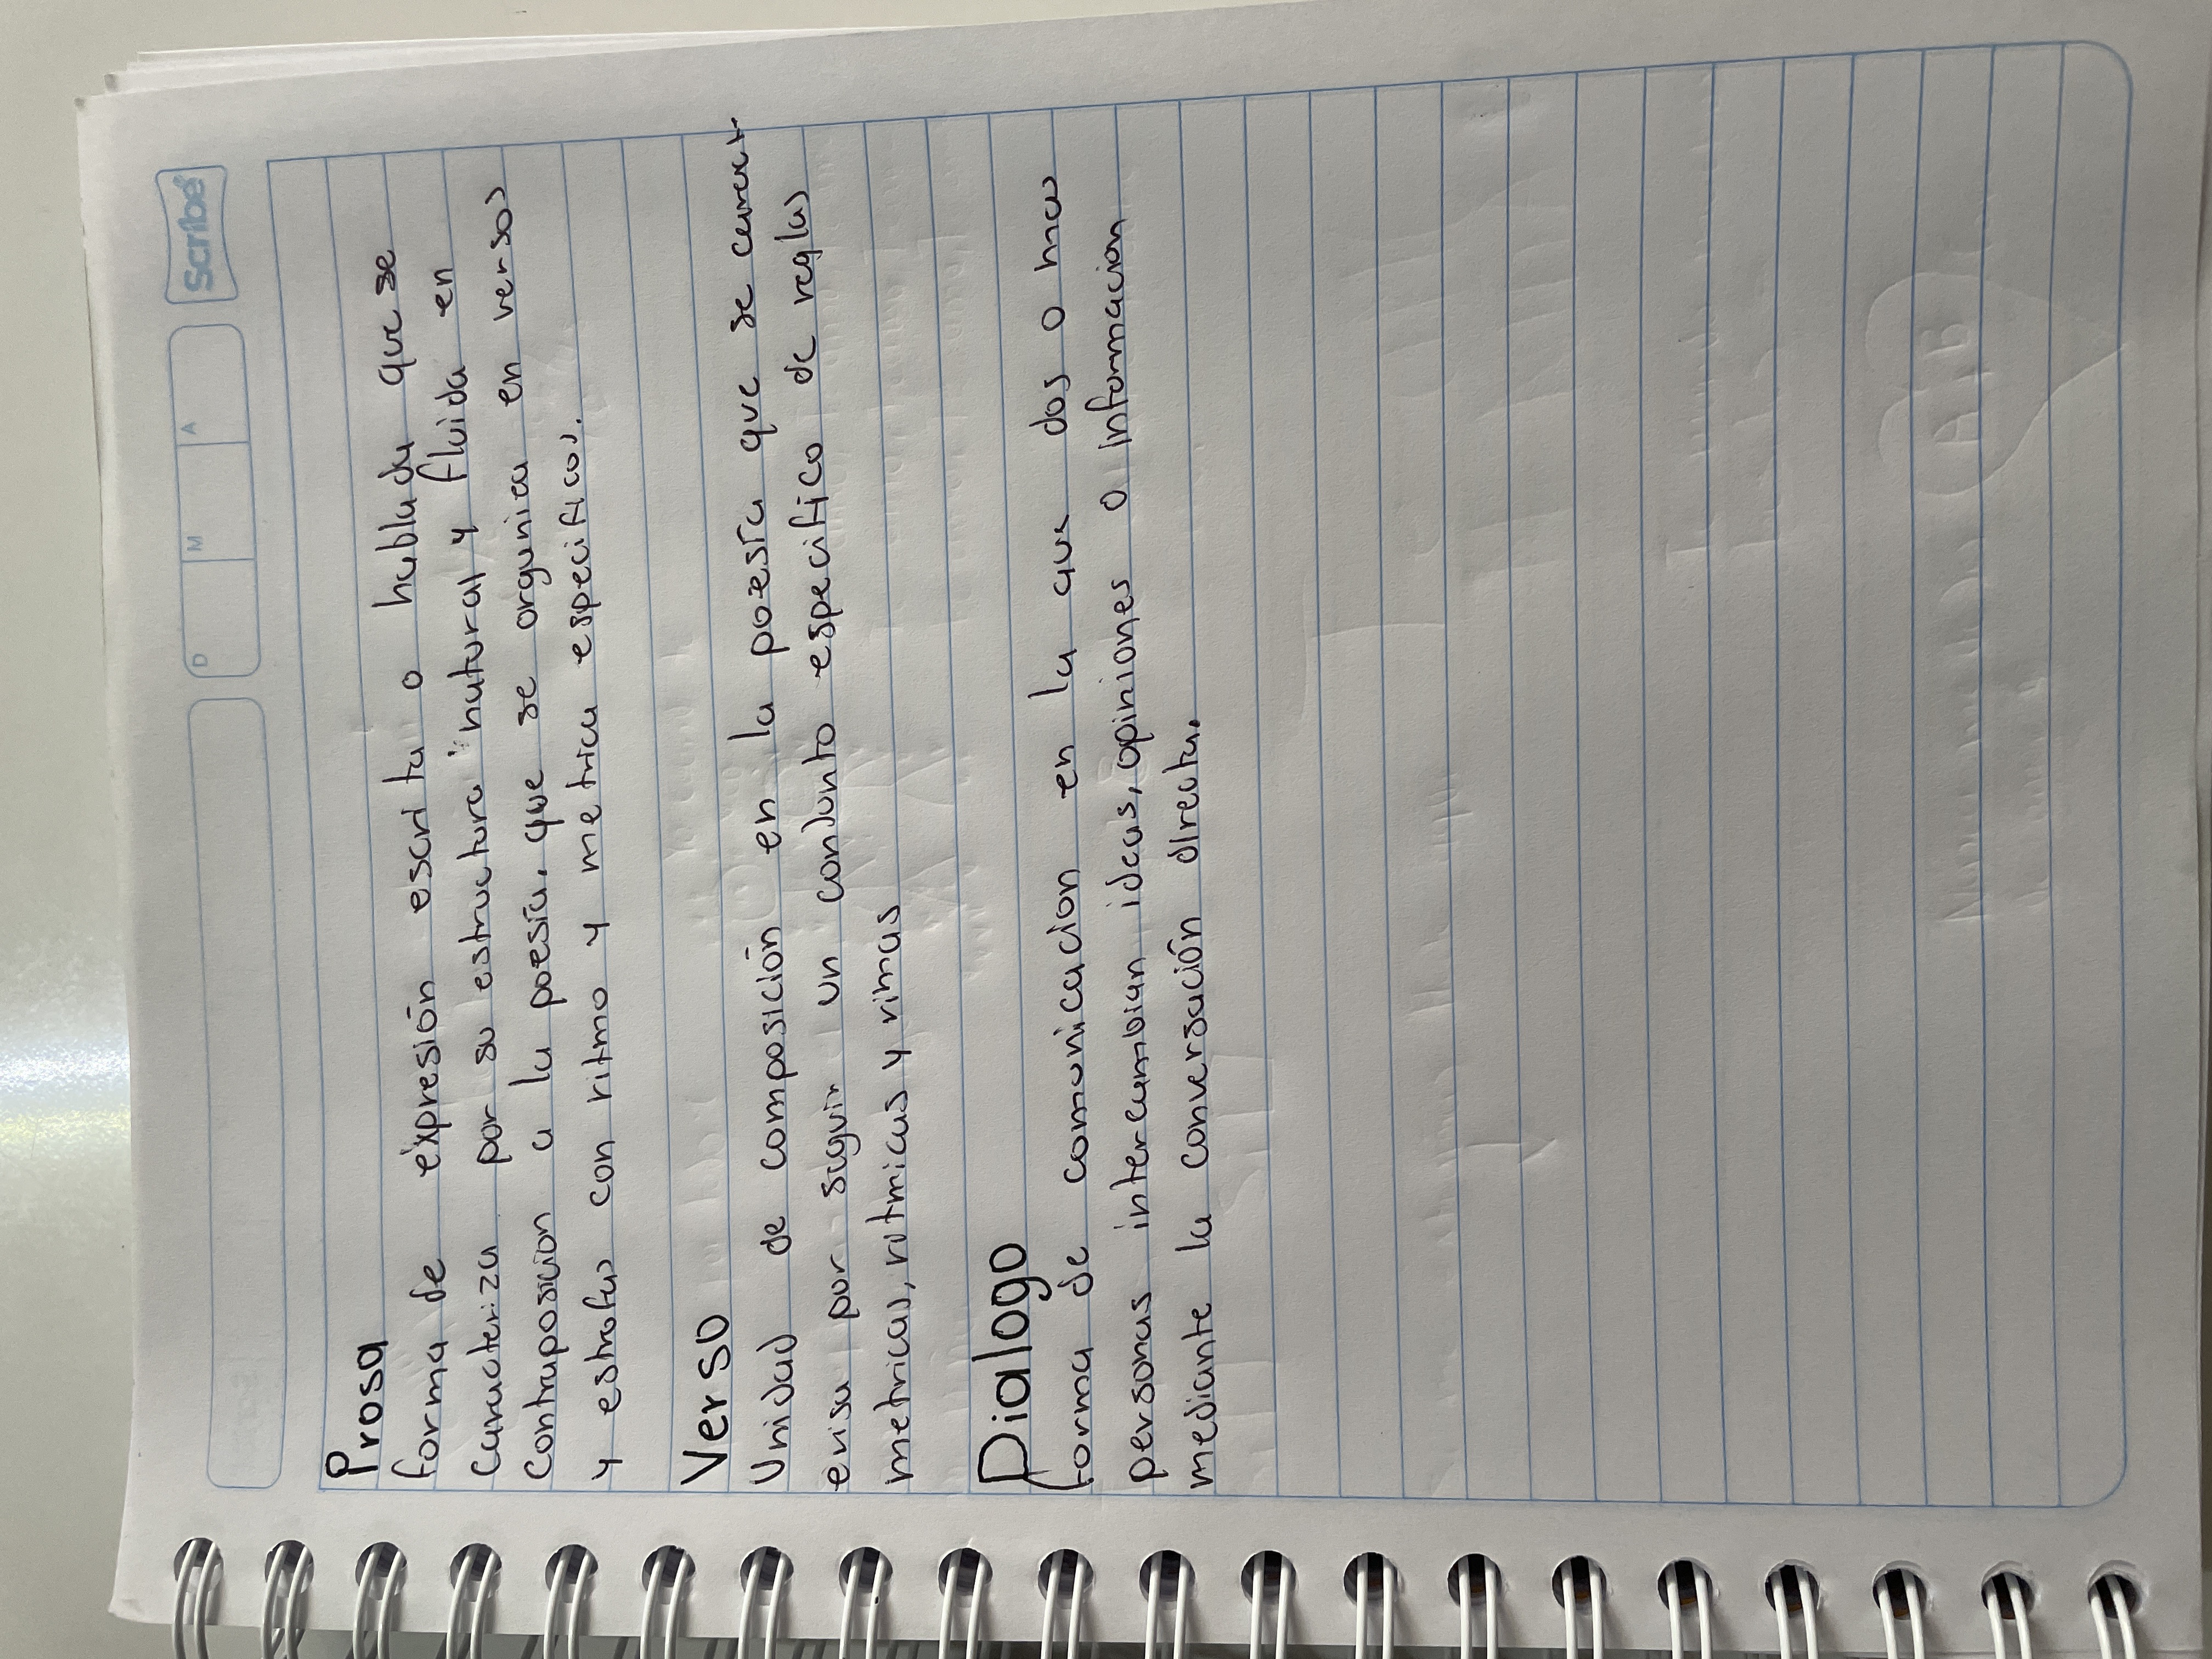 Scribe
D M A
Prosa
forma de expresión escrita o hablada que se
caracteriza por su estructura natural y fluida en
contraposicion a la poesía, que se organica en versos
y estrofas con ritmo y metrica especificos.
Verso
Unidad de composición en la poesía que se caract
erisa por seguir un conjunto especifico de reglas
metricas, ritmicas y rimas
Dialogo
forma de comunicacion en la que dos o mas
personas intercambian ideas, opiniones o informacion
mediante la conversación directa.